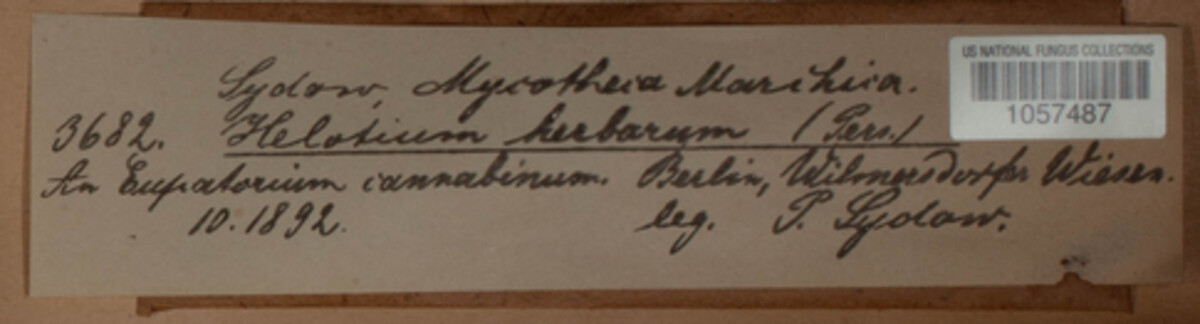 US NATIONAL FUNGUS COLLECTIONS
1057487
Sydow, Mycotheca Marchica.
3682. Helotium herbarum (Pers.)
An Eupatorium cannabinum. Berlin, Wilmersdorfer Wiesen.
10.1892. leg. P. Sydow.